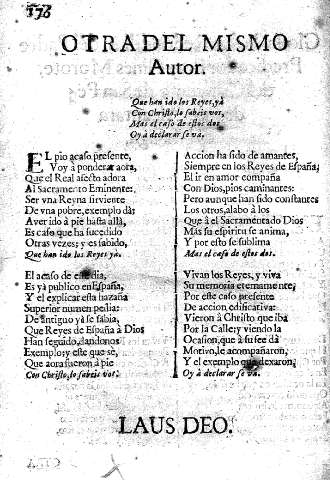 176
OTRA DEL MISMO
Autor.
Que han ido los Reyes, yà
Con Christo, lo sabeis vos,
Mas el caso de estos dos
Oy à declarar se va.
EL pio acaso presente,
Voy à ponderar aora,
Que el Real afecto adora
Al Sacramento Eminente:
Ser vna Reyna sirviente
De vna pobre, exemplo dà:
Aver ido à pie hasta allà,
Es caso que ha sucedido
Otras vezes; y es sabido,
Que han ido los Reyes yà.
El acaso de este dia,
Es yà publico en España,
Y el explicar esta hazaña
Superior numen pedia:
De antiguo yà se sabia,
Que Reyes de España à Dios
Han seguido, dandonos
Exemplo; y este que sè,
Que aora fueron à pie
Con Christo, lo sabeis vos.
Accion ha sido de amantes,
Siempre en los Reyes de España;
El ir en amor compaña
Con Dios, pios caminantes:
Pero aunque han sido constantes
Los otros, alabo à los
Que à el Sacramentado Dios
Mas su espiritu se anima,
Y por esto se sublima
Mas el caso de estos dos.
Vivan los Reyes, y viva
Su memoria eternamente;
Por este caso presente
De accion edificativa:
Vieron à Christo que iba
Por la Calle; y viendo la
Ocasion, que à su seè dà
Motivo, le acompañaron,
Y el exemplo que dexaron,
Oy à declarar se va.
LAUS DEO.